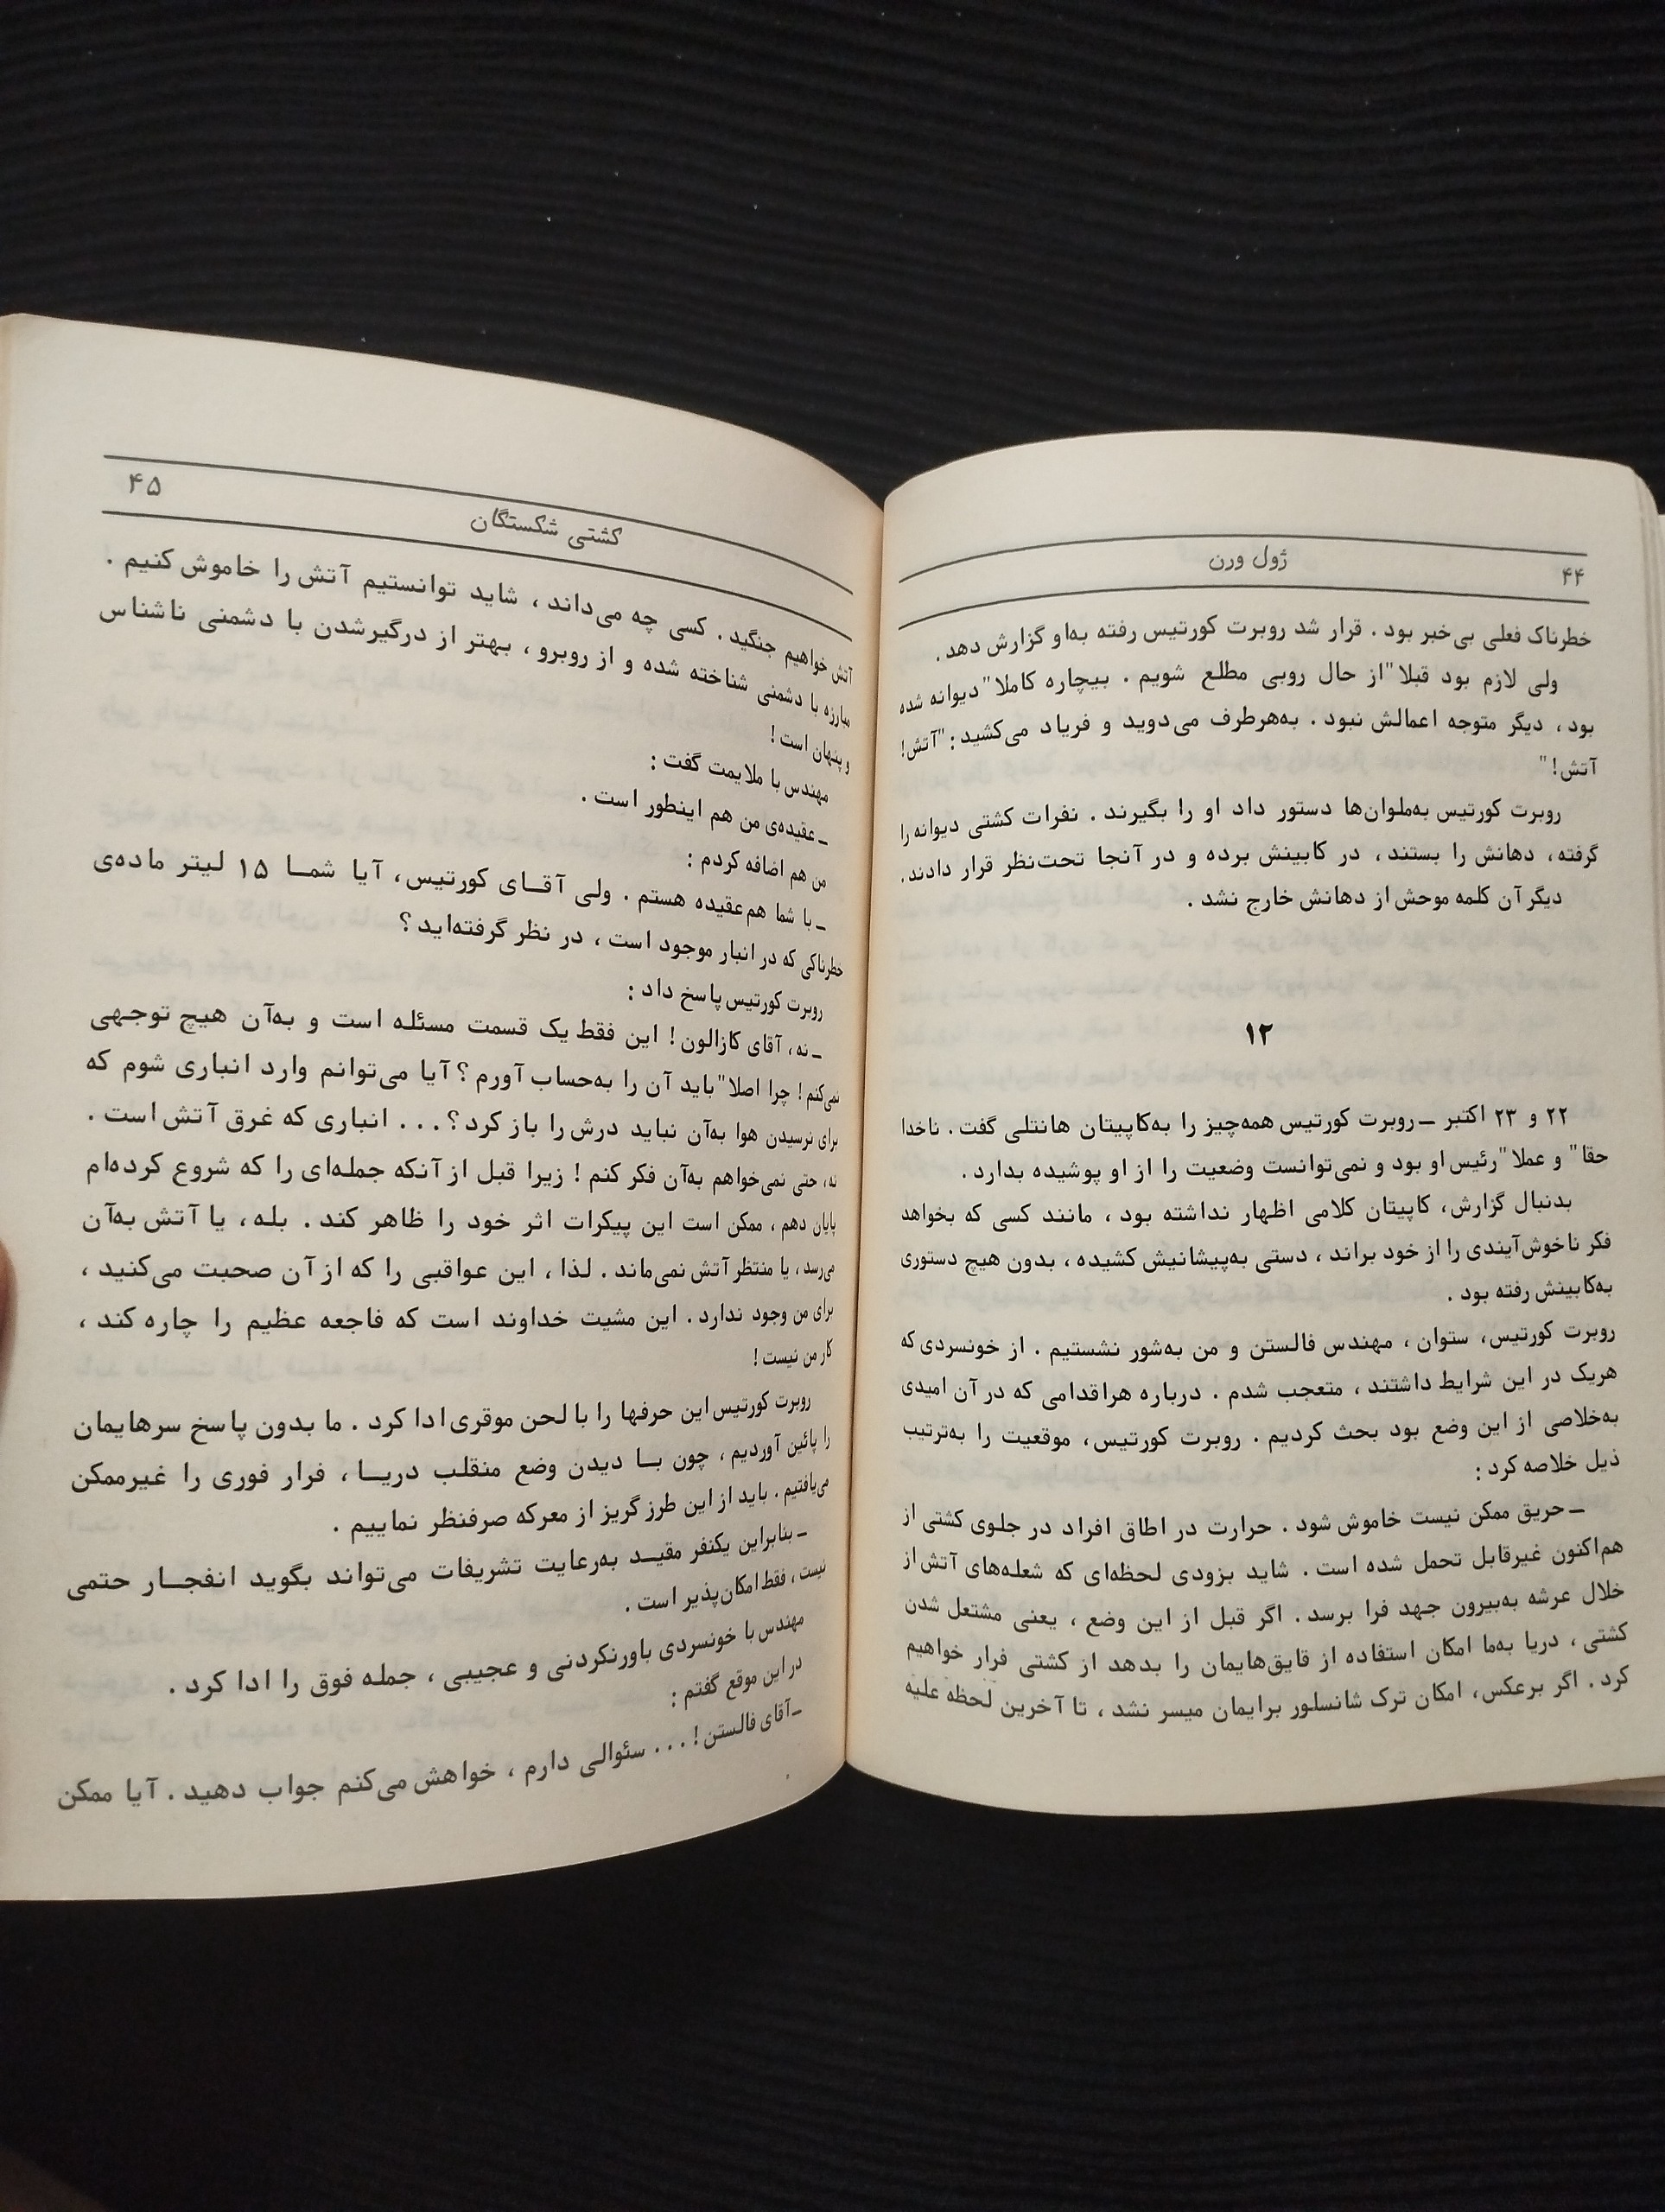 ۴۴
ژول ورن
خطرناک فعلی بی‌خبر بود . قرار شد روبرت کورتیس رفته به‌او گزارش دهد .
ولی لازم بود قبلا" از حال روبی مطلع شویم . بیچاره کاملا" دیوانه شده
بود ، دیگر متوجه اعمالش نبود . به‌هرطرف می‌دوید و فریاد می‌کشید : "آتش!
آتش! "
روبرت کورتیس به‌ملوان‌ها دستور داد او را بگیرند . نفرات کشتی دیوانه را
گرفته ، دهانش را بستند ، در کابینش برده و در آنجا تحت‌نظر قرار دادند .
دیگر آن کلمه موحش از دهانش خارج نشد .
۱۲
۲۲ و ۲۳ اکتبر ــ روبرت کورتیس همه‌چیز را به‌کاپیتان هانتلی گفت . ناخدا
حقا" و عملا" رئیس او بود و نمی‌توانست وضعیت را از او پوشیده بدارد .
بدنبال گزارش ، کاپیتان کلامی اظهار نداشته بود ، مانند کسی که بخواهد
فکر ناخوش‌آیندی را از خود براند ، دستی به‌پیشانیش کشیده ، بدون هیچ دستوری
به‌کابینش رفته بود .
روبرت کورتیس ، ستوان ، مهندس فالستن و من به‌شور نشستیم . از خونسردی که
هریک در این شرایط داشتند ، متعجب شدم . درباره هراقدامی که در آن امیدی
به‌خلاصی از این وضع بود بحث کردیم . روبرت کورتیس ، موقعیت را به‌ترتیب
ذیل خلاصه کرد :
ــ حریق ممکن نیست خاموش شود . حرارت در اطاق افراد در جلوی کشتی از
هم‌اکنون غیرقابل تحمل شده است . شاید بزودی لحظه‌ای که شعله‌های آتش از
خلال عرشه به‌بیرون جهد فرا برسد . اگر قبل از این وضع ، یعنی مشتعل شدن
کشتی ، دریا به‌ما امکان استفاده از قایق‌هایمان را بدهد از کشتی فرار خواهیم
کرد . اگر برعکس ، امکان ترک شانسلور برایمان میسر نشد ، تا آخرین لحظه علیه
کشتی شکستگان
۴۵
آتش خواهیم جنگید . کسی چه می‌داند ، شاید توانستیم آتش را خاموش کنیم .
مبارزه با دشمنی شناخته شده و از روبرو ، بهتر از درگیرشدن با دشمنی ناشناس
و پنهان است !
مهندس با ملایمت گفت :
ــ عقیده‌ی من هم اینطور است .
من هم اضافه کردم :
ــ با شما هم‌عقیده هستم . ولی آقــای کورتیس ، آیا شمــا ۱۵ لیتر ماده‌ی
خطرناکی که در انبار موجود است ، در نظر گرفته‌اید ؟
روبرت کورتیس پاسخ داد :
ــ نه ، آقای کازالون ! این فقط یک قسمت مسئله است و به‌آن هیچ توجهی
نمی‌کنم ! چرا اصلا" باید آن را به‌حساب آورم ؟ آیا می‌توانم وارد انباری شوم که
برای نرسیدن هوا به‌آن نباید درش را باز کرد ؟ . . . انباری که غرق آتش است .
نه ، حتی نمی‌خواهم به‌آن فکر کنم ! زیرا قبل از آنکه جمله‌ای را که شروع کرده‌ام
پایان دهم ، ممکن است این پیکرات اثر خود را ظاهر کند . بله ، یا آتش به‌آن
می‌رسد ، یا منتظر آتش نمی‌ماند . لذا ، این عواقبی را که از آن صحبت می‌کنید ،
برای من وجود ندارد . این مشیت خداوند است که فاجعه عظیم را چاره کند ،
کار من نیست !
روبرت کورتیس این حرفها را با لحن موقری ادا کرد . ما بدون پاسخ سرهایمان
را پائین آوردیم ، چون بــا دیدن وضع منقلب دریــا ، فرار فوری را غیرممکن
می‌یافتیم . باید از این طرز گریز از معرکه صرفنظر نماییم .
ــ بنابراین یکنفر مقیــد به‌رعایت تشریفات می‌تواند بگوید انفجــار حتمی
نیست ، فقط امکان‌پذیر است .
مهندس با خونسردی باورنکردنی و عجیبی ، جمله فوق را ادا کرد .
در این موقع گفتم :
ــ آقای فالستن ! . . . سئوالی دارم ، خواهش می‌کنم جواب دهید . آیا ممکن